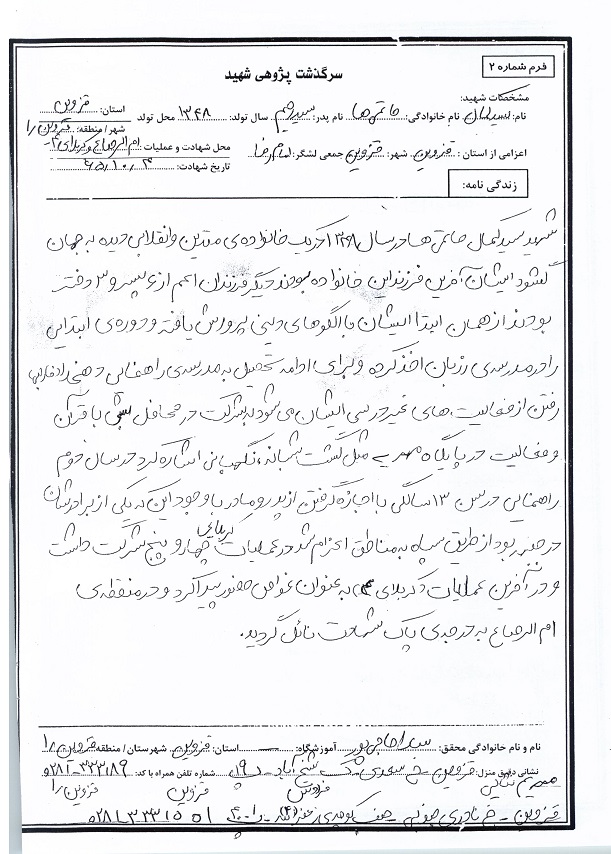 فرم شماره ۲
سرگذشت پژوهی شهید
مشخصات شهید:
نام: سیدکمال نام خانوادگی: حاتمی‌ها نام پدر: سیدرحیم سال تولد: ۱۳۴۸ محل تولد استان: قزوین
شهر/منطقه: قزوین
اعزامی از استان: قزوین شهر: قزوین جمعی لشگر: امام رضا محل شهادت و عملیات: ام الرصاص کربلای ۴
تاریخ شهادت: ۶۵،۱۰،۴
زندگی نامه:
شهید سیدکمال حاتمی‌ها در سال ۱۳۴۸ در یک خانواده‌ی متدین و انقلابی دیده به جهان
گشود ایشان آخرین فرزند این خانواده بودند دیگر فرزندان اعم از ۶ پسر و ۳ دختر
بودند از همان ابتدا ایشان با الگوهای دینی پرورش یافته و دوره‌ی ابتدایی
را در مدرسه‌ی رزبان اخذ کرده و برای ادامه تحصیل به مدرسه‌ی راهنمایی
رفتن از فعالیت‌های غیر درسی ایشان می‌شود به شرکت در محافل با قرآن
و فعالیت در پایگاه مثل گشت شبانه، نگهبانی اشاره کرد در سال دوم
راهنمایی در سن ۱۳ سالگی با اجازه گرفتن از پدر و مادر با وجود این که یکی از برادرشان
در جبهه بود از طریق سپاه به مناطق اعزام شد در عملیات کربلای چهار و پنج شرکت داشت
و در آخرین عملیات (کربلای ۴) به عنوان غواص حضور پیدا کرد و در منطقه‌ی
ام الرصاص به درجه‌ی پاک شهادت نائل گردید.
نام و نام خانوادگی محقق: آموزشگاه: استان: قزوین شهرستان/منطقه: قزوین
نشانی دقیق منزل: قزوین - خ سعدی - پ ۱۹ شماره تلفن همراه با کد: ۳۳۳۸۹ - ۰۲۸۱
قزوین قزوین
قزوین - خ نادری جنوبی - ۳۳۱۵۵۱ - ۰۲۸۱